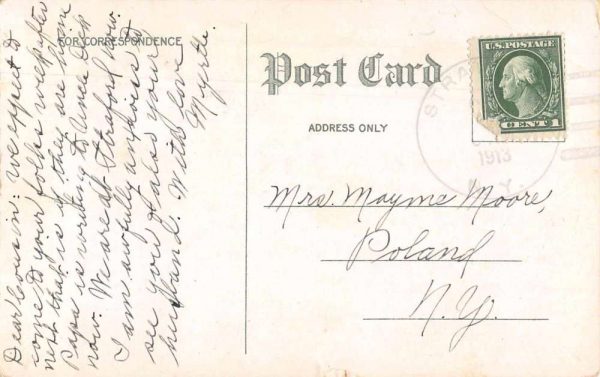 FOR CORRESPONDENCE
Dear Cousin: we expect to
come to your folks week after
next that is if they are home
Papa is writing to Aunce Dell
now. We are at Stratford now.
I am awfully anxious to
see you & also your
husband. With love
Myrtle.
Post Card
ADDRESS ONLY
U.S. POSTAGE
1 CENT 1
STRA
1913
Y.
Mrs. Mayme Moore,
Poland
N.Y.